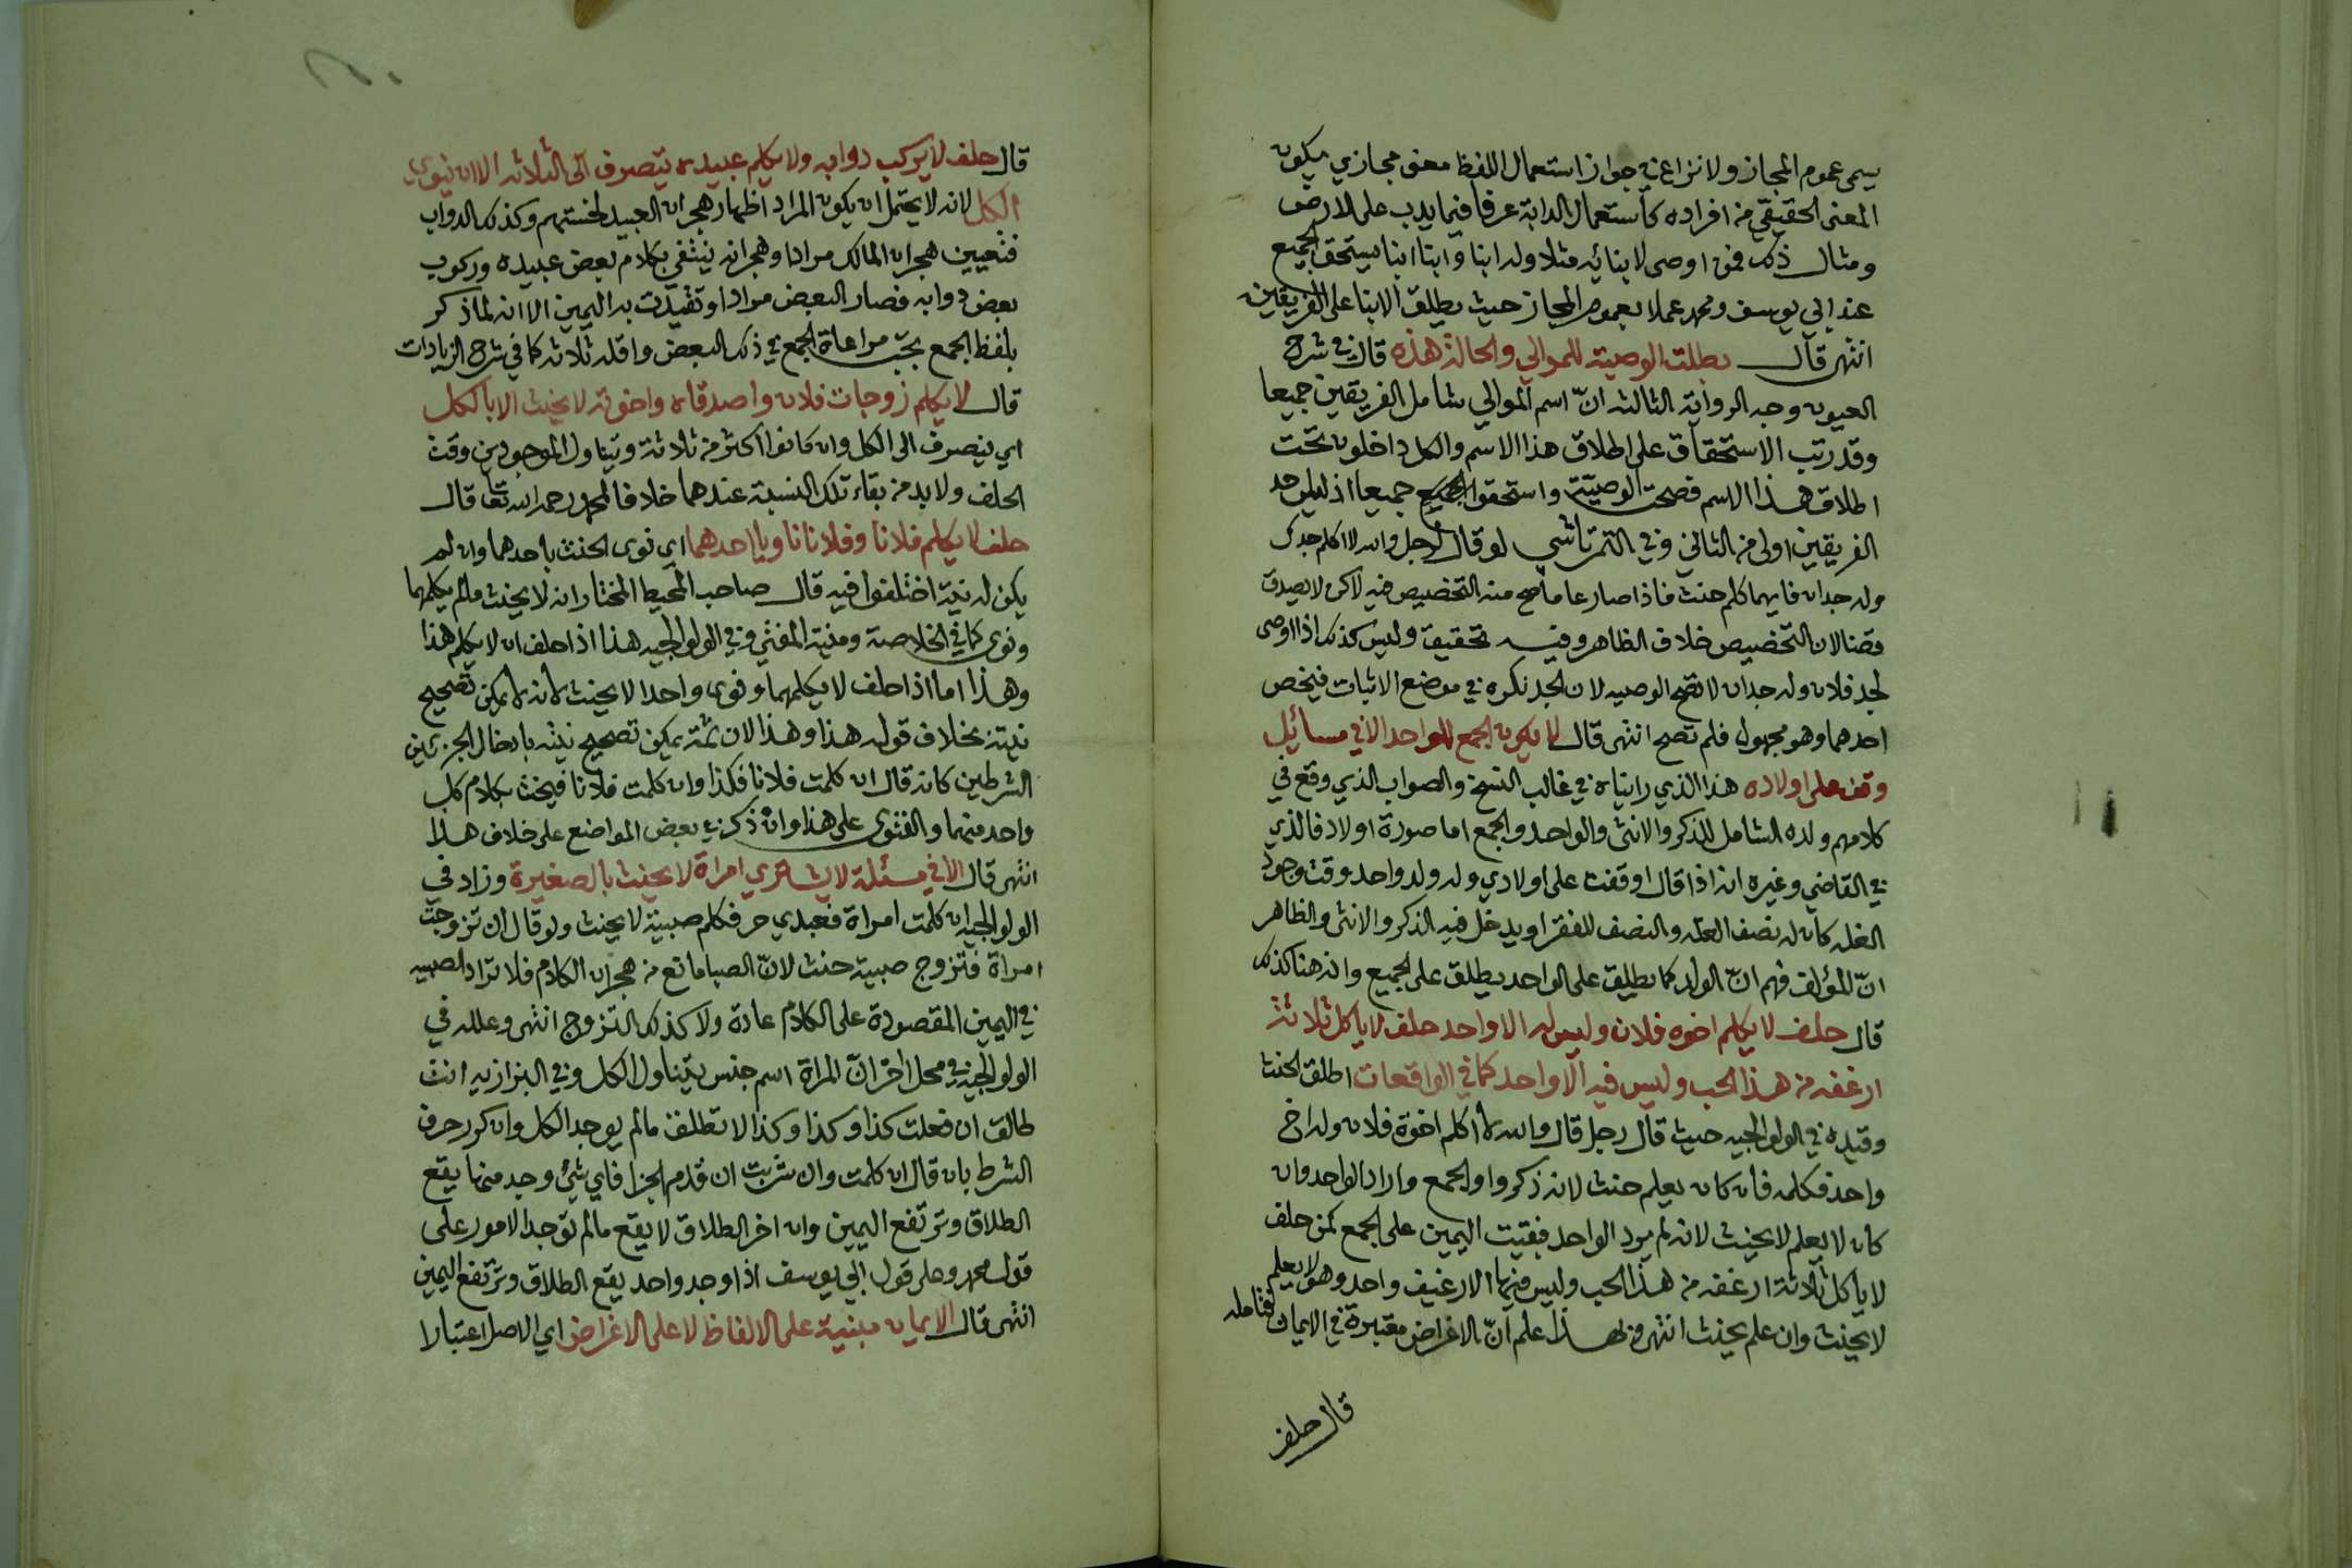 يسمى عموم المجاز ولا نزاع في جواز استعمال اللفظ معنى مجازي يكون
المعنى الحقيقي من افراده كاستعمال الدابة عرفا فيما يدب على الارض
ومثال ذلك فمن اوصى لابنائه مثلا وله ابنا وابنا ابنا يستحق الجميع
عند ابي يوسف ومحمد عملا بعموم المجاز حيث يطلق الابنا على الفريقين
انتهى قال بطلت الوصية للموالي والحالة هذه قال في شرح
العيون وجه الرواية الثالثة انّ اسم الموالي شامل الفريقين جميعا
وقد رتب الاستحقاق على اطلاق هذا الاسم والكل داخلون تحت
اطلاق هذا الاسم فصحت الوصية واستحقوا الجميع جميعا اذ ليس حد
الفريقين اولى من الثاني وفي التمرتاشي لو قال لرجل والله لا اكلم جدك
وله جدان فايهما كلم حنث فاذا صار عاما صح منه التخصيص فيه لاكن لا يصدق
قضا لان التخصيص خلاف الظاهر وفيه تحقيق وليس كذلك اذا اوصى
لجد فلان وله جدان لا تصح الوصيه لان الجد نكره في موضع الاثبات فيخص
احدهما وهو مجهول فلم تصح انتهى قال لا يكون الجمع للواحد الا في مسائل
وقف على اولاده هذا الذي رايناه في غالب النسخ والصواب الذي وقع في
كلامهم ولده الشامل للذكر والانثى والواحد والجمع اما صورة اولاد فالذي
في القاضي وغيره انه اذا قال اوقفت على اولادي وله ولد واحد وقت وجود
الغله كان له نصف الغله والنصف للفقرا ويدخل فيه الذكر والانثى والظاهر
انّ المؤلف فهم انّ الولد كما يطلق على الواحد يطلق على الجميع وانه هنا كذلك
قال حلف لا يكلم اخوه فلان وليس له الا واحد حلف لا ياكل ثلاثة
ارغفه من هذا الحب وليس فيه الا واحد كما في الواقعات اطلق الحنث
وقيده في الولوالجيه حيث قال رجل قال والله لا اكلم اخوة فلان وله اخ
واحد فكلمه فان كان يعلم حنث لانه ذكر واو الجمع واراد الواحد وان
كان لا يعلم لا يحنث لانه لم يرد الواحد فبقيت اليمين على الجمع كمن حلف
لا ياكل ثلاثة ارغفه من هذا الحب وليس فيها الا رغيف واحد وهو لا يعلم
لا يحنث وان علم يحنث انتهى وبهذا علم انّ الاغراض معتبرة في الايمان فتامله
قال حلف
قال حلف لا يركب دوابه ولا يكلم عبيده يتصرف الى الثلاثه الا ان ينوي
الكل لانه لا يحتمل ان يكون المراد اظهار هجران العبيد لخستهم وكذلك الدواب
فتعيين هجران المالك مرادا وهجرانه ينتفي بكلام بعض عبيده وركوب
بعض دوابه فصار البعض مرادا وتقيدت به اليمين الا انه لما ذكر
بلفظ الجمع يجب مراعاة الجمع في ذلك البعض واقله ثلاثه كما في شرح الزيادات
قال لا يكلم زوجات فلان واصدقاه واخوته لا يحنث الا بالكل
اي ينصرف الى الكل وان كانوا اكثر من ثلاثة ويتناول الموجودين وقت
الحلف ولا بد من بقاء تلك النسبة عندهما خلافا لمحمد رحمه الله تعا قال
حلف لا يكلم فلانا وفلانا ناويا احدهما اي نوى الحنث باحدهما وان لم
يكن له نية اختلفوا فيه قال صاحب المحيط المختار انه لا يحنث مالم يكلمهما
ونوى كما في الخلاصة ومنية المفتي وفي الولوالجيه هذا اذا حلف ان لا يكلم هذا
وهذا اما اذا حلف لا يكلمهما ونوى واحدا لا يحنث لانه لا يمكن تصحيح
نيته بخلاف قوله هذا وهذا لان ثمة يمكن تصحيح نيته بادخال الجز بين
الشرطين كانه قال ان كلمت فلانا فكذا وان كلمت فلانا فيحنث بكلام كل
واحد منهما والفتوى على هذا وان ذكر في بعض المواضع على خلاف هذا
انتهى قال الا في مسئلة لا يشتري امراة لا يحنث بالصغيرة وزاد في
الولوالجيه ان كلمت امراة فعبدي حر فكلم صبية لا يحنث ولو قال ان تزوجت
امراة فتزوج صبية حنث لانّ الصبا مانع من هجران الكلام فلا تراد الصبيه
في اليمين المقصودة على الكلام عادة ولا كذلك التزوج انتهى وعلله في
الولوالجيه في محل اخر انّ المراة اسم جنس يتناول الكل وفي البزازيه انت
طالق ان فعلت كذا وكذا وكذا لا تطلق مالم يوجد الكل وان كرر حرف
الشرط بان قال ان كلمت وان شربت ان قدم الجزا فاي شئ وجد منها يقع
الطلاق وترتفع اليمين وان اخر الطلاق لا يقع مالم توجد الامور على
قول محمد وعلى قول ابي يوسف اذا وجد واحد يقع الطلاق وترتفع اليمين
انتهى قال الايمان مبنية على الالفاظ لا على الاغراض اي الاصل اعتبارا